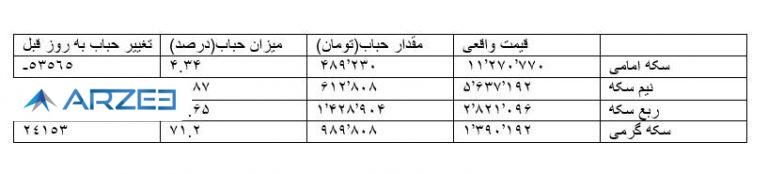 قیمت واقعی مقدار حباب(تومان) میزان حباب(درصد) تغییر حباب به روز قبل
سکه امامی ۱۱٬۲۷۰٬۷۷۰ ۴۸۹٬۲۳۰ ۴.۳۴ ۵۳۵۶۵-
نیم سکه ۵٬۶۳۷٬۱۹۲ ۶۱۲٬۸۰۸ ۸۷
ربع سکه ۲٬۸۲۱٬۰۹۶ ۱٬۴۲۸٬۹۰۴ .۶۵
سکه گرمی ۱٬۳۹۰٬۱۹۲ ۹۸۹٬۸۰۸ ۷۱.۲ ۲۴۱۵۳
ARZEE